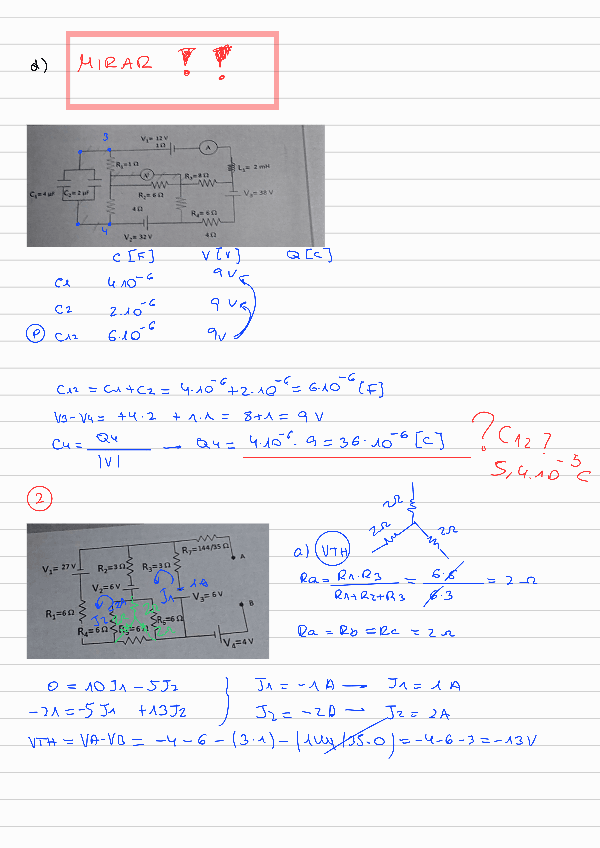 d) MIRAR ! !
3
V₁= 12 V
1Ω
A
R₁=1Ω
L₁= 2 mH
C₁=4 µF C₂=2 µF
R₃=8Ω
R₂=6Ω
V₃=38 V
4Ω
R₄=6Ω
4
V₂=32 V
4Ω
C [F] V [V] Q [C]
C1 4·10⁻⁶ 9V
C2 2·10⁻⁶ 9V
P C12 6·10⁻⁶ 9V
C12 = C1 + C2 = 4·10⁻⁶ + 2·10⁻⁶ = 6·10⁻⁶ [F]
V3-V4 = +4·2 + 1·1 = 8+1 = 9 V
C4 = Q4 / |V| → Q4 = 4·10⁻⁶ · 9 = 36·10⁻⁶ [C]
? C12 ?
5,4·10⁻⁵ C
2
2Ω
2Ω 2Ω
R₇=144/35Ω
A
V₁= 27 V R₂=3Ω R₃=3Ω
V₂=6V J1 1A
V₃= 6 V
R₁=6Ω J2 2A
B
R₄=6Ω R₆=6Ω
V₄=4V
a) VTH
Ra = R1·R3 / R1+R2+R3 = 6·6 / 6·3 = 2Ω
Ra = Rb = Rc = 2Ω
0 = 10J1 - 5J2 J1 = -1A → J1 = 1A
-21 = -5J1 + 13J2 J2 = -2A → J2 = 2A
VTH = VA-VB = -4-6-(3·1)-(144/35·0) = -4-6-3 = -13V